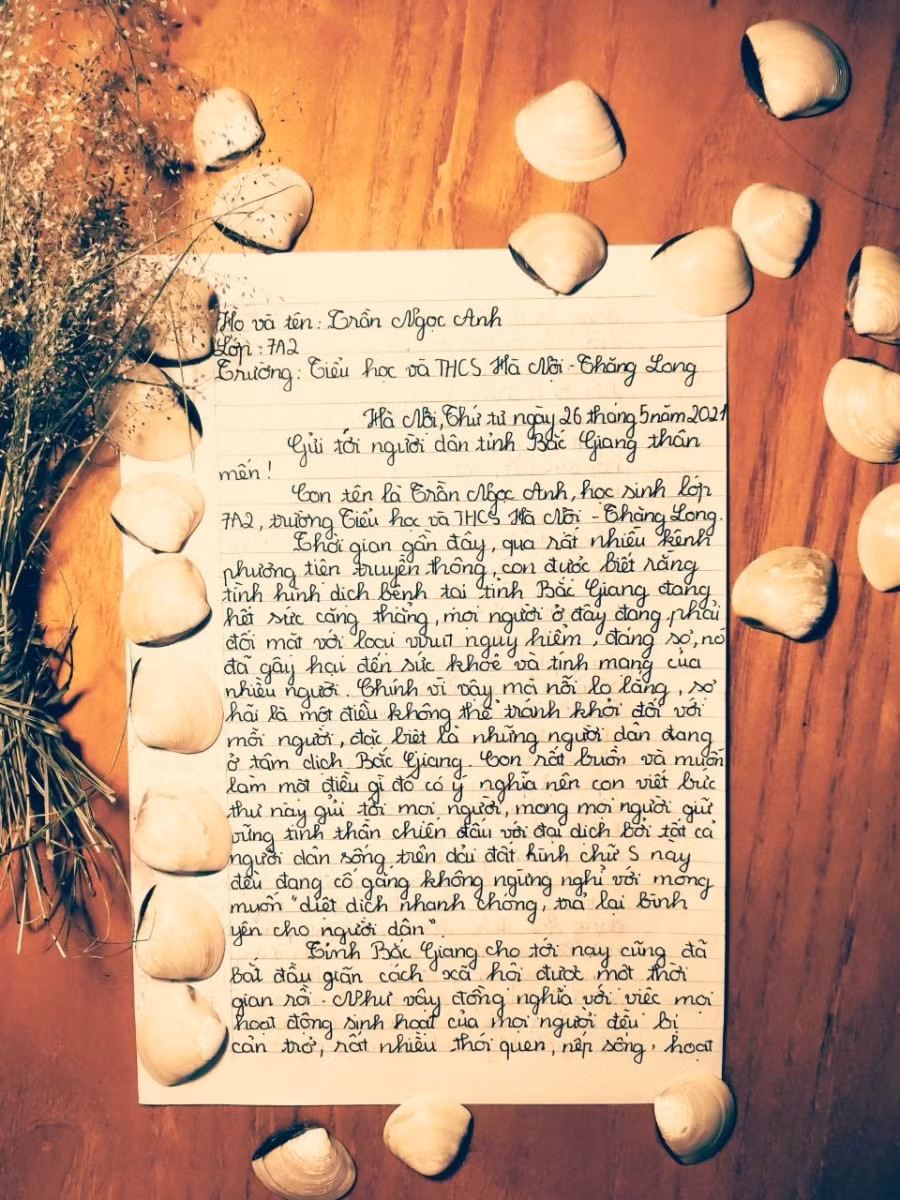 Họ và tên: Trần Ngọc Anh
Lớp: 7A2
Trường: Tiểu học và THCS Hà Nội - Thăng Long
Hà Nội, Thứ tư ngày 26 tháng 5 năm 2021
Gửi tới người dân tỉnh Bắc Giang thân
mến!
Con tên là Trần Ngọc Anh, học sinh lớp
7A2, trường Tiểu học và THCS Hà Nội - Thăng Long.
Thời gian gần đây, qua rất nhiều kênh
phương tiện truyền thông, con được biết rằng
tình hình dịch bệnh tại tỉnh Bắc Giang đang
hết sức căng thẳng, mọi người ở đây đang phải
đối mặt với loại virut nguy hiểm, đáng sợ, nó
đã gây hại đến sức khoẻ và tính mạng của
nhiều người. Chính vì vậy mà nỗi lo lắng, sợ
hãi là một điều không thể tránh khỏi đối với
mỗi người, đặc biệt là những người dân đang
ở tâm dịch Bắc Giang. Con rất buồn và muốn
làm một điều gì đó có ý nghĩa nên con viết bức
thư này gửi tới mọi người, mong mọi người giữ
vững tinh thần chiến đấu với đại dịch bởi tất cả
người dân sống trên dải đất hình chữ S này
đều đang cố gắng không ngừng nghỉ với mong
muốn "diệt dịch nhanh chóng, trả lại bình
yên cho người dân".
Tỉnh Bắc Giang cho tới nay cũng đã
bắt đầu giãn cách xã hội được một thời
gian rồi. Như vậy đồng nghĩa với việc mọi
hoạt động sinh hoạt của mọi người đều bị
cản trở, rất nhiều thói quen, nếp sống, hoạt